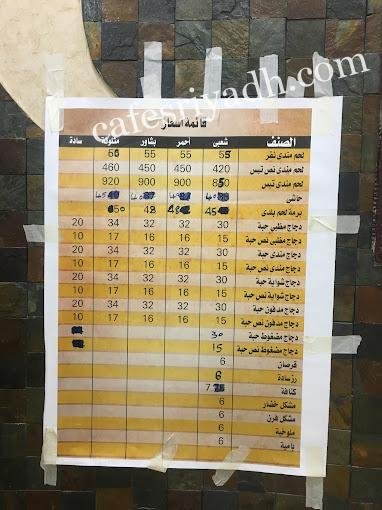 cafesriyadh.com
قائمه اسعار
الصنف شعبي أحمر بشاور مثلوثة سادة
لحم مندي نفر 55 55 55 60
لحم مندي نص تيس 420 450 450 460
لحم مندي تيس 850 900 900 920
حاشي
برمة لحم بلدي 45 48 50
دجاج مظبي حبة 30 32 32 34 20
دجاج مظبي نص حبة 15 16 16 17 10
دجاج مندي حبة 30 32 32 34 20
دجاج مندي نص حبة 15 16 16 17 10
دجاج شواية حبة 30 32 32 34 20
دجاج شواية نص حبة 15 16 16 17 10
دجاج مدفون حبة 30 32 32 34 20
دجاج مدفون نص حبة 15 16 16 17 10
دجاج مضغوط حبة 30
دجاج مضغوط نص حبة 15
قرصان 6
رز سادة 6
كنافة 7
مشكل خضار 6
مشكل فرن 6
ملوخية 6
بامية 6